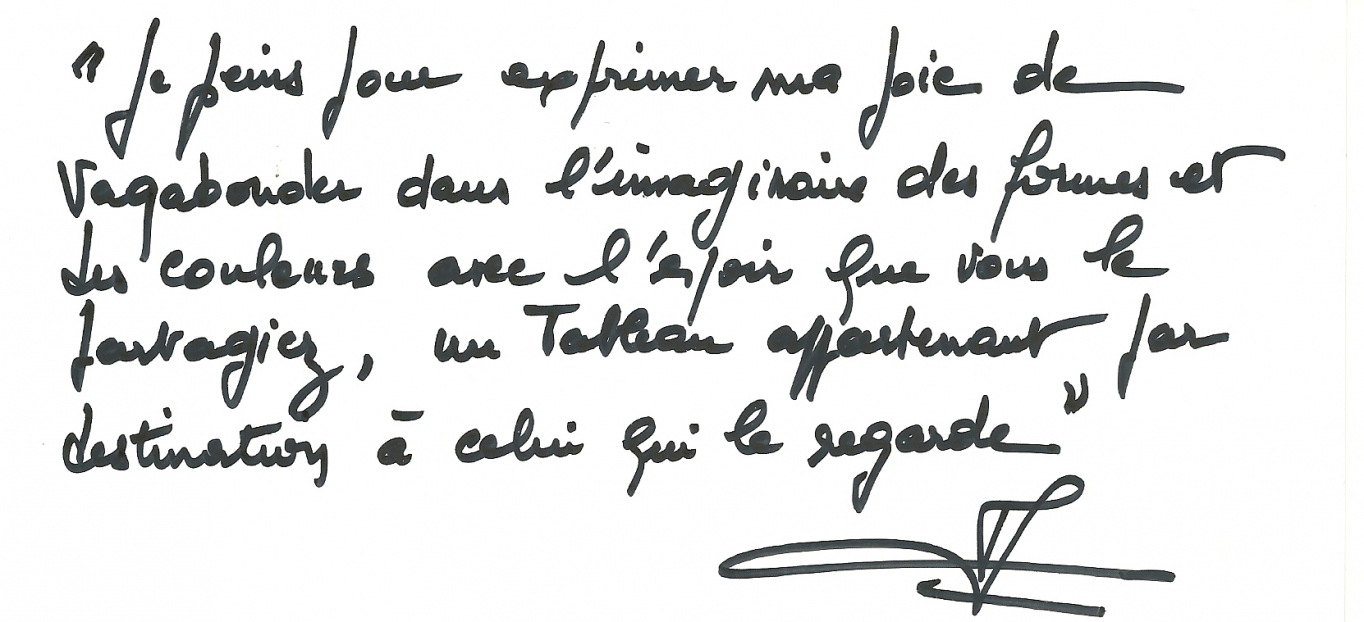 " Je peins pour exprimer ma joie de
vagabonder dans l'imaginaire des formes et
des couleurs avec l'espoir que vous le
partagiez, un Tableau appartenant par
destination à celui qui le regarde "